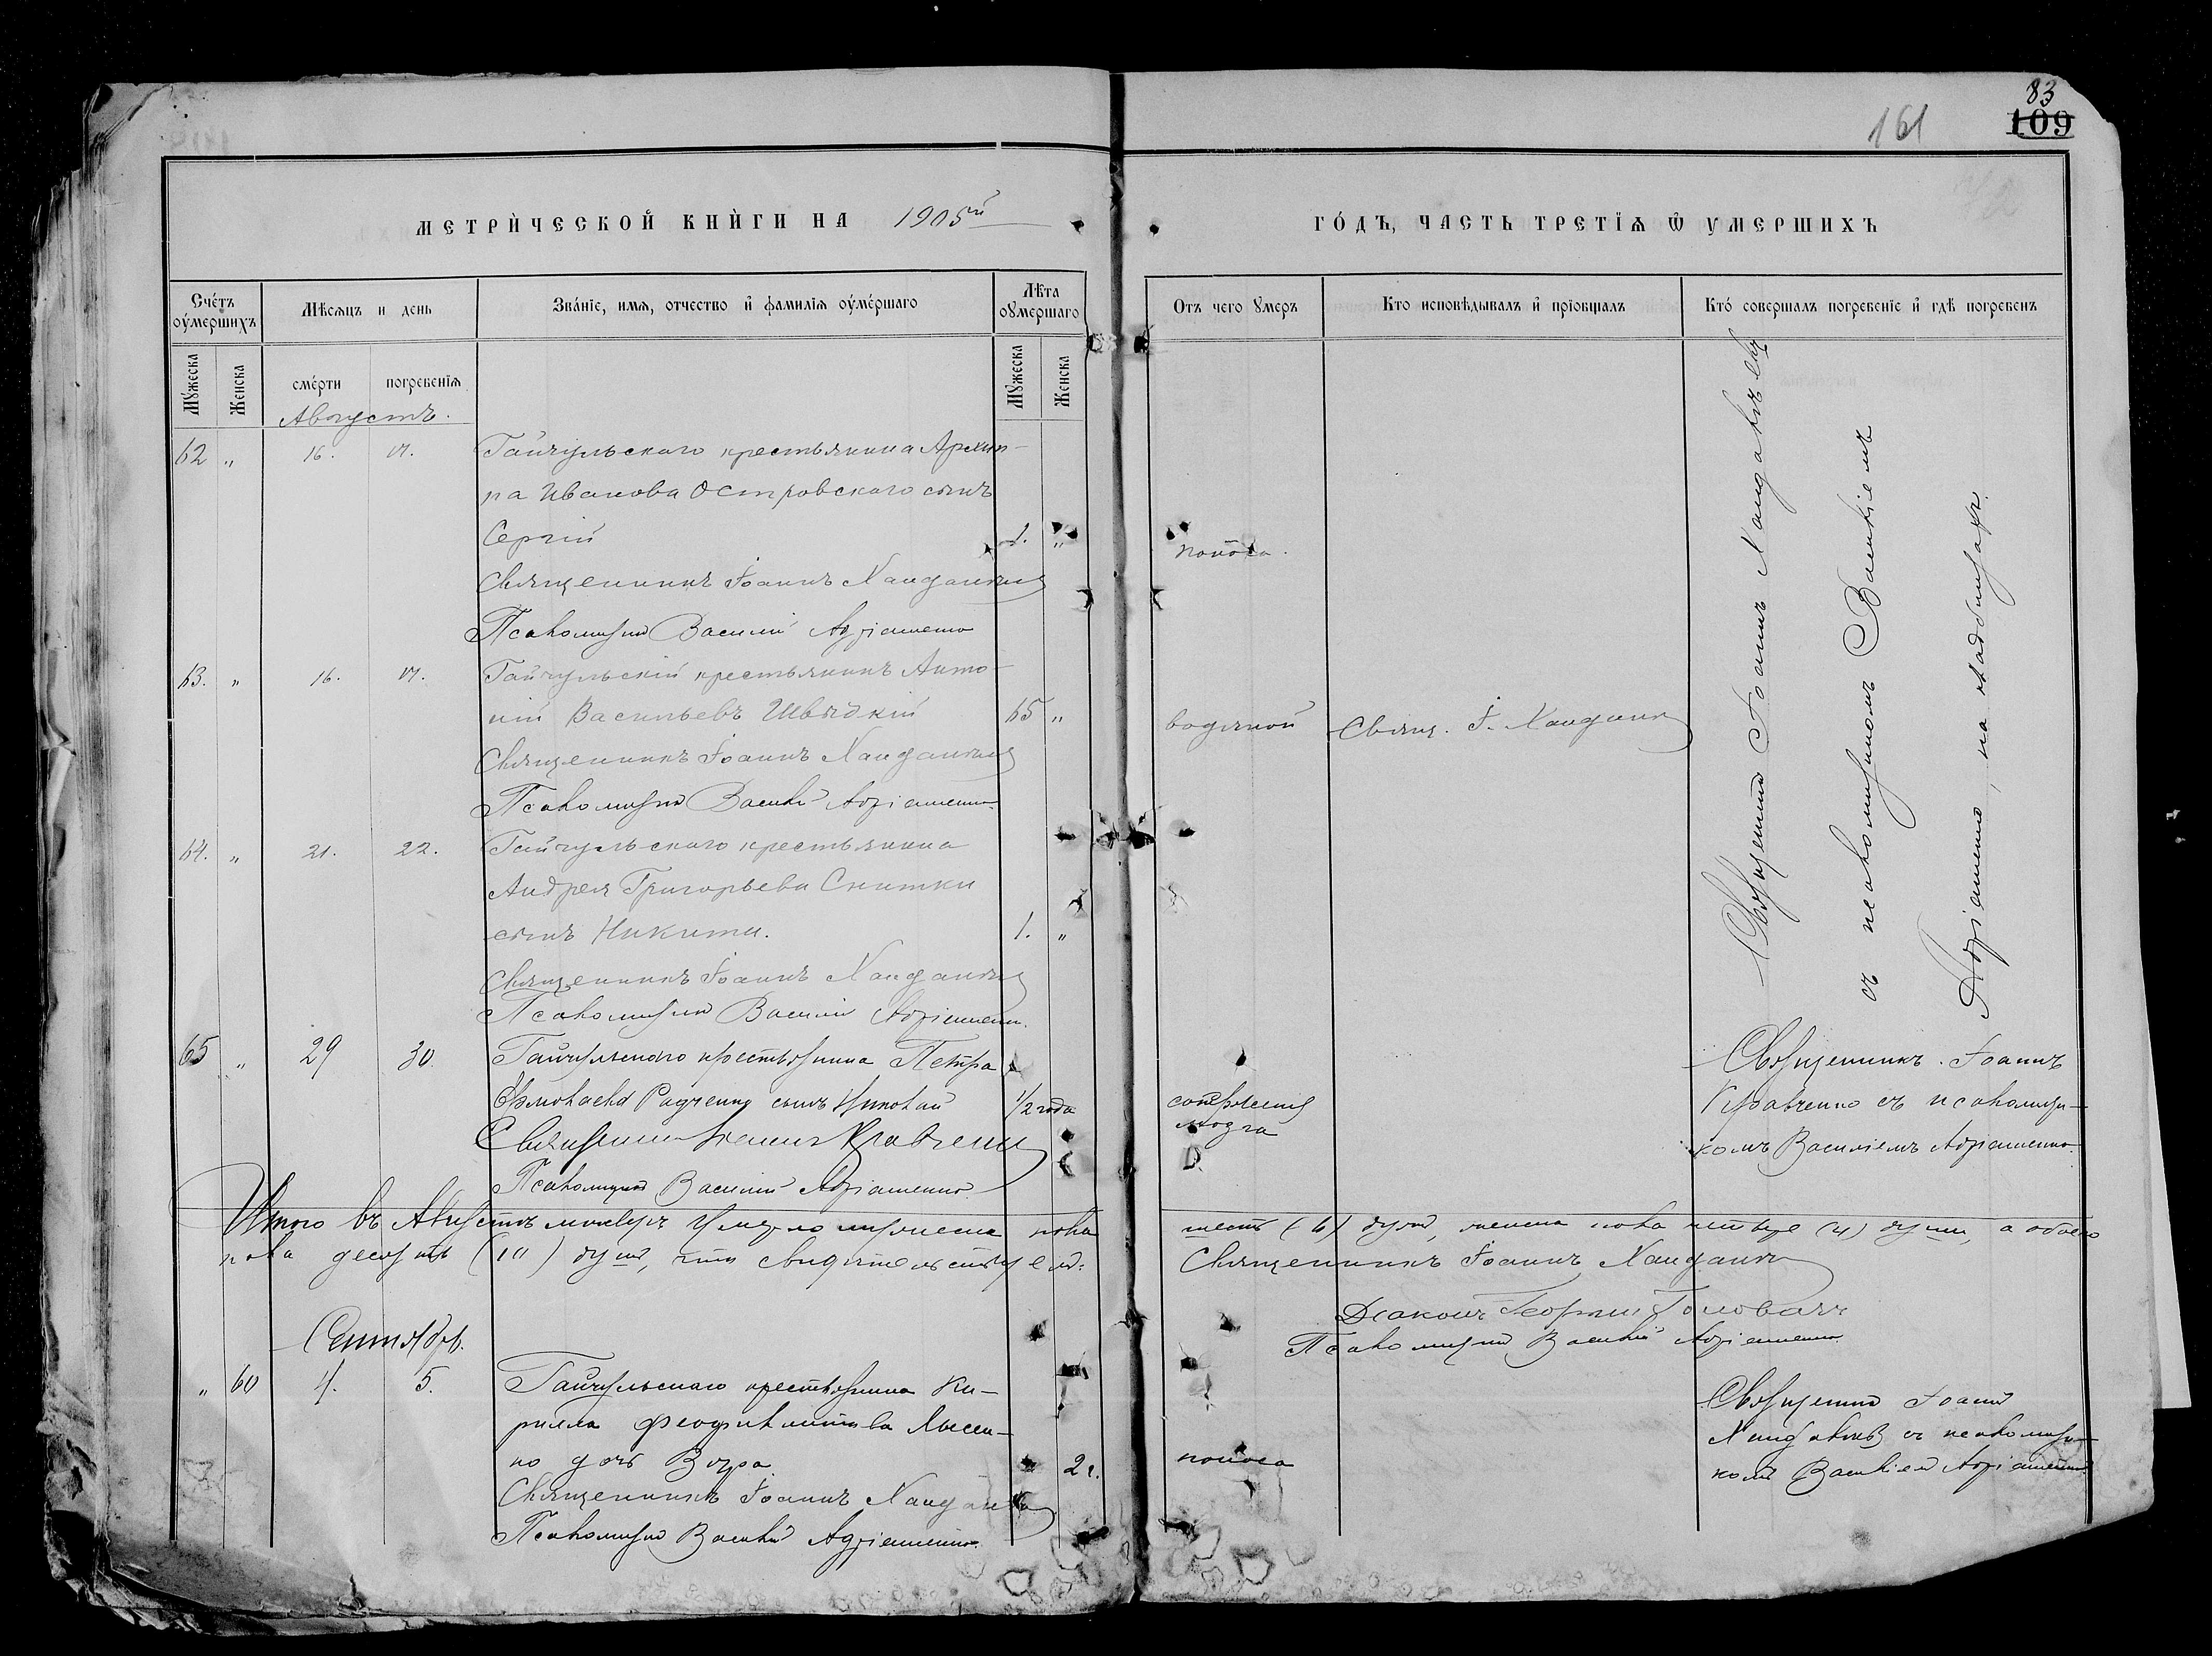 83
161 109
МЕТРИЧЕСКОЙ КНИГИ НА 1905й
ГОДЪ, ЧАСТЬ ТРЕТІЯ Ѿ УМЕРШИХЪ
Счетъ умершихъ
Мѣсяцъ и день
Званіе, имя, отчество и фамилія умершаго
Лѣта умершаго
Отъ чего умеръ
Кто исповѣдывалъ и пріобщалъ
Кто совершалъ погребеніе и гдѣ погребенъ
Мужеска
Женска
смерти
погребенія
Мужеска
Женска
Августъ.
62 " 16. 17. Гайчульскаго крестьянина Архип-
па Иванова Островскаго сынъ
Сергій 1. " поноса.
Священникъ Іоаннъ
Псаломщикъ Василій Адріашенко
63. " 16. 17. Гайчульскій крестьянинъ Анто-
ній Васильевъ Швыдкій 65 " водяной Свящ. І.
Священникъ Іоаннъ
Псаломщикъ Василій Адріашенко
64. " 21. 22. Гайчульскаго крестьянина
Андрея Григорьева Снитки
сынъ Никита. 1. "
Священникъ Іоаннъ
Псаломщикъ Василій Адріашенко.
Священникъ Іоаннъ
съ псаломщикомъ Василіемъ
Адріашенко, на кладбищахъ.
65 " 29 30. Гайчульскаго крестьянина Петра
Ермолаева Радченко сынъ Николай 1/2 года сотрясенія
мозга
Священникъ Іоаннъ Кравченко
Псаломщикъ Василій Адріашенко
Священникъ Іоаннъ
Кравченко съ псаломщи-
комъ Василіемъ Адріашенко.
Итого въ Августѣ мѣсяцѣ умерло мужеска пола шесть (6) душъ, женска пола четыре (4) души, а обоего
пола десять (10) душъ, что свидѣтельствуемъ:
Священникъ Іоаннъ
Діаконъ Георгій Головачъ
Псаломщикъ Василій Адріашенко.
Сентябрь.
" 60 4. 5. Гайчульскаго крестьянина Ки-
рилла Феофилактова Лысен-
ко дочь Вѣра. 2 г. поноса
Священникъ Іоаннъ
Псаломщикъ Василій Адріашенко.
Священникъ Іоаннъ
съ псаломщи-
комъ Василіемъ Адріашенко